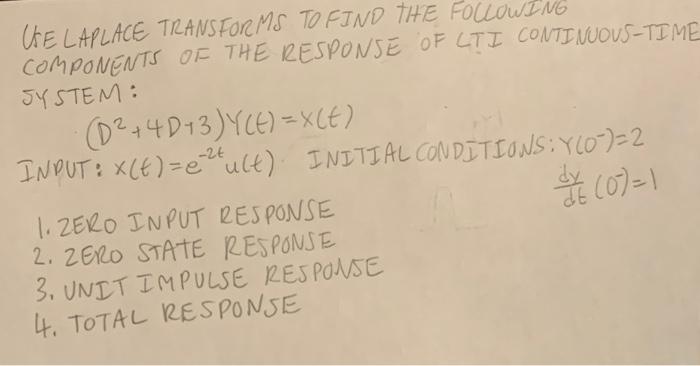 USE LAPLACE TRANSFORMS TO FIND THE FOLLOWING
COMPONENTS OF THE RESPONSE OF LTI CONTINUOUS-TIME
SYSTEM:
(D²+4D+3)Y(t)=X(t)
INPUT: X(t)=e^-2t u(t) INITIAL CONDITIONS: Y(0⁻)=2
dy/dt (0⁻)=1
1. ZERO INPUT RESPONSE
2. ZERO STATE RESPONSE
3. UNIT IMPULSE RESPONSE
4. TOTAL RESPONSE